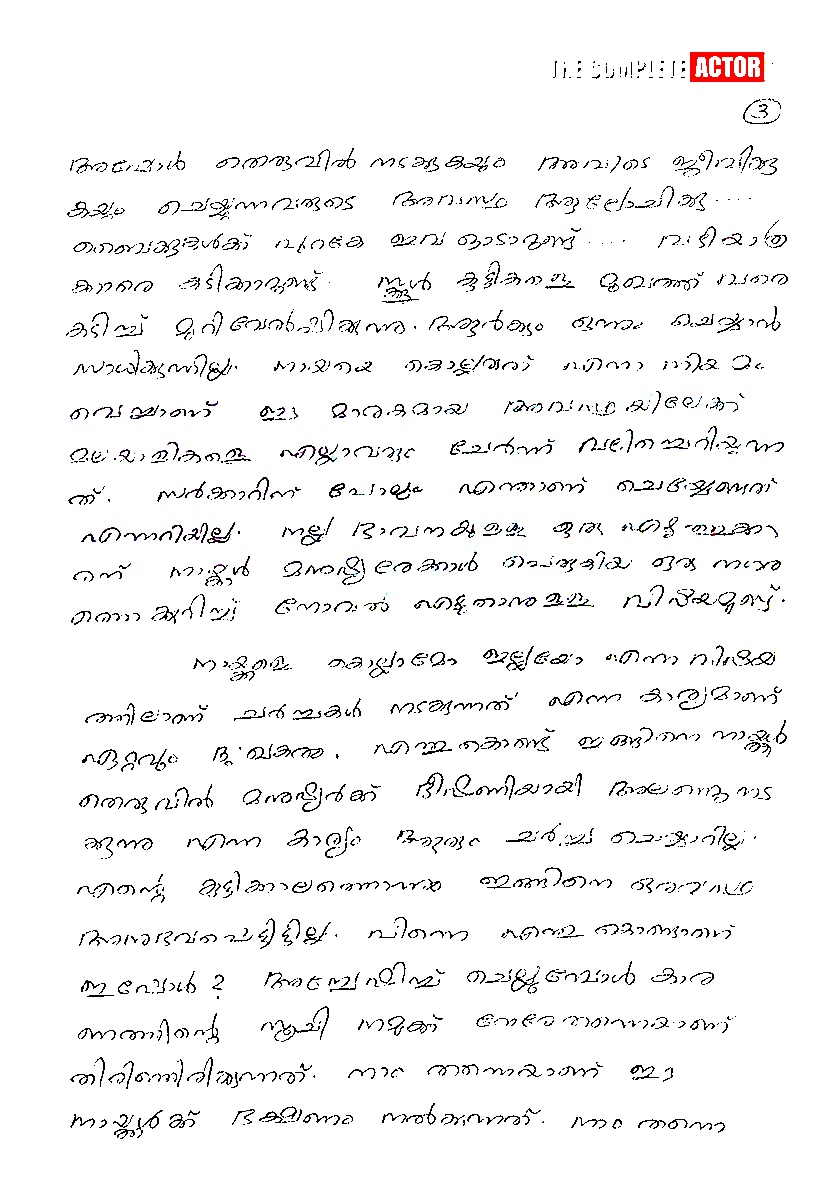 THE COMPLETE ACTOR
3
അപ്പോൾ തെരുവിൽ നടക്കുകയും അവിടെ ജീവിക്കു
കയും ചെയ്യുന്നവരുടെ അവസ്ഥ ആലോചിക്കൂ ....
ബൈക്കുകൾക്ക് പുറകേ ഇവ ഓടാറുണ്ട് .... വഴിയാത്ര
ക്കാരെ കടിക്കാറുണ്ട്. സ്കൂൾ കുട്ടികളുടെ മുഖത്ത് വരെ
കടിച്ച് മുറിവേൽപ്പിക്കുന്നു. ആർക്കും ഒന്നും ചെയ്യാൻ
സാധിക്കുന്നില്ല. നായയെ കൊല്ലരുത് എന്ന നിയമം
വെച്ചാണ് ഈ മാരകമായ അവസ്ഥയിലേക്ക്
മലയാളികളെ എല്ലാവരും ചേർന്ന് വലിച്ചെറിയുന്ന
ത്. സർക്കാറിന് പോലും എന്താണ് ചെയ്യേണ്ടത്
എന്നറിയില്ല. നല്ല ഭാവനകളുള്ള ഒരു എഴുത്തുകാ
രന് നായ്ക്കൾ മനുഷ്യരേക്കാൾ പെരുകിയ ഒരു നഗര
ത്തെക്കുറിച്ച് നോവൽ എഴുതാനുള്ള വിഷയമുണ്ട്.
നായ്ക്കളെ കൊല്ലാമോ ഇല്ലയോ എന്ന വിഷയ
ത്തിലാണ് ചർച്ചകൾ നടക്കുന്നത് എന്ന കാര്യമാണ്
ഏറ്റവും ദുഃഖകരം. എന്തുകൊണ്ട് ഇങ്ങിനെ നായ്ക്കൾ
തെരുവിൽ മനുഷ്യർക്ക് ഭീഷണിയായി അലഞ്ഞുനട
ക്കുന്നു എന്ന കാര്യം ആരും ചർച്ച ചെയ്യാറില്ല.
എന്റെ കുട്ടിക്കാലത്തൊന്നും ഇങ്ങിനെ ഒരവസ്ഥ
അനുഭവപ്പെട്ടിട്ടില്ല. പിന്നെ എന്തുകൊണ്ടാണ്
ഇപ്പോൾ ? അന്വേഷിച്ച് ചെല്ലുമ്പോൾ കാര
ണത്തിന്റെ സൂചി നമുക്ക് നേരേ തന്നെയാണ്
തിരിഞ്ഞിരിക്കുന്നത്. നാം തന്നെയാണ് ഈ
നായ്ക്കൾക്ക് ഭക്ഷണം നൽകുന്നത്. നാം തന്നെ